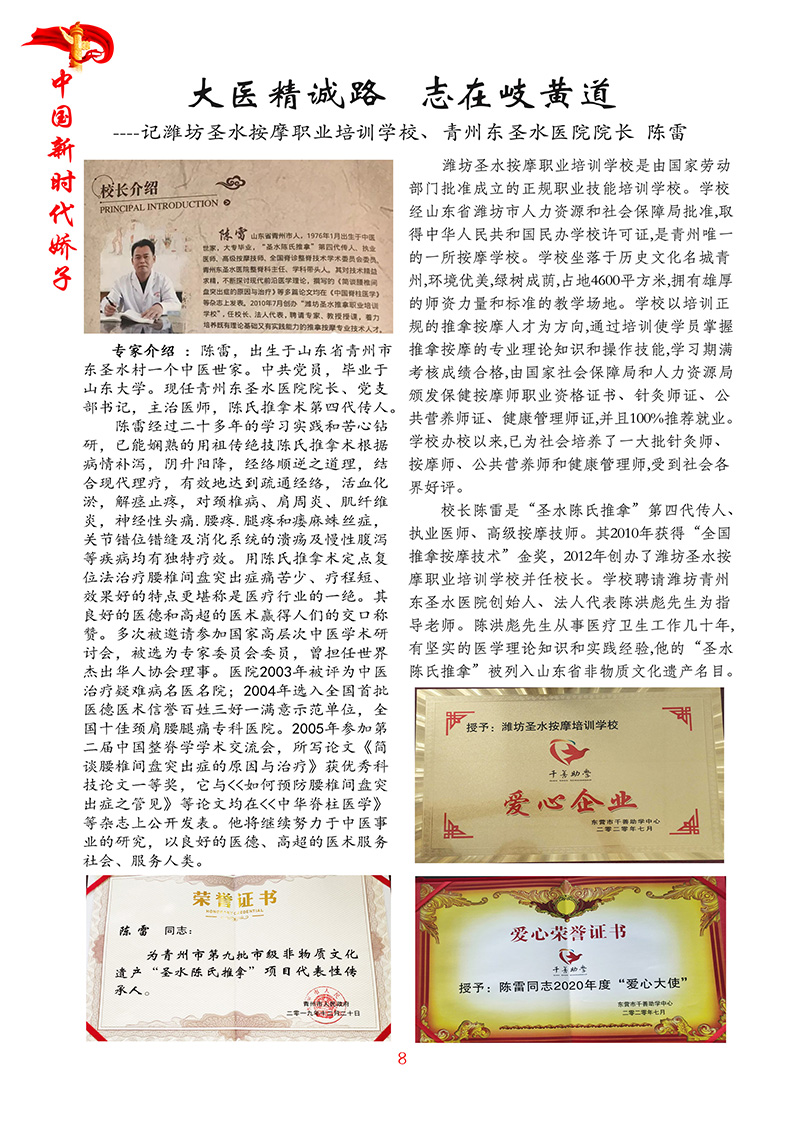 中国新时代娇子
大医精诚路 志在岐黄道
----记潍坊圣水按摩职业培训学校、青州东圣水医院院长 陈雷
校长介绍
PRINCIPAL INTRODUCTION
陈雷 山东省青州市人，1976年1月出生于中医
世家，大专毕业，“圣水陈氏推拿”第四代传人、执业
医师、高级按摩技师、全国脊诊整脊技术学术委员会委员，
青州东圣水医院整脊科主任、学科带头人，其对技术精益
求精，不断探讨现代前沿医学理论，撰写的《简谈腰椎间
盘突出症的原因与治疗》等多篇论文均在《中国脊柱医学》
等杂志上发表。2010年7月创办“潍坊圣水推拿职业培训
学校”，任校长、法人代表，聘请专家、教授授课，着力
培养既有理论基础又有实践能力的推拿按摩专业技术人才，
专家介绍 ：陈雷，出生于山东省青州市
东圣水村一个中医世家。中共党员，毕业于
山东大学。现任青州东圣水医院院长、党支
部书记，主治医师，陈氏推拿术第四代传人。
陈雷经过二十多年的学习实践和苦心钻
研，已能娴熟的用祖传绝技陈氏推拿术根据
病情补泻，阴升阳降，经络顺逆之道理，结
合现代理疗，有效地达到疏通经络，活血化
淤，解痉止疼，对颈椎病、肩周炎、肌纤维
炎，神经性头痛.腰疼.腿疼和瘘麻蛛丝症，
关节错位错缝及消化系统的溃疡及慢性腹泻
等疾病均有独特疗效。用陈氏推拿术定点复
位法治疗腰椎间盘突出症痛苦少、疗程短、
效果好的特点更堪称是医疗行业的一绝。其
良好的医德和高超的医术赢得人们的交口称
赞。多次被邀请参加国家高层次中医学术研
讨会，被选为专家委员会委员，曾担任世界
杰出华人协会理事。医院2003年被评为中医
治疗疑难病名医名院；2004年选入全国首批
医德医术信誉百姓三好一满意示范单位，全
国十佳颈肩腰腿痛专科医院。2005年参加第
二届中国整脊学学术交流会，所写论文《简
谈腰椎间盘突出症的原因与治疗》获优秀科
技论文一等奖，它与<<如何预防腰椎间盘突
出症之管见》等论文均在<<中华脊柱医学》
等杂志上公开发表。他将继续努力于中医事
业的研究，以良好的医德、高超的医术服务
社会、服务人类。
潍坊圣水按摩职业培训学校是由国家劳动
部门批准成立的正规职业技能培训学校。学校
经山东省潍坊市人力资源和社会保障局批准,取
得中华人民共和国民办学校许可证,是青州唯一
的一所按摩学校。学校坐落于历史文化名城青
州,环境优美,绿树成荫,占地4600平方米,拥有雄厚
的师资力量和标准的教学场地。学校以培训正
规的推拿按摩人才为方向,通过培训使学员掌握
推拿按摩的专业理论知识和操作技能,学习期满
考核成绩合格,由国家社会保障局和人力资源局
颁发保健按摩师职业资格证书、针灸师证、公
共营养师证、健康管理师证,并且100%推荐就业。
学校办校以来,已为社会培养了一大批针灸师、
按摩师、公共营养师和健康管理师,受到社会各
界好评。
校长陈雷是“圣水陈氏推拿”第四代传人、
执业医师、高级按摩技师。其2010年获得“全国
推拿按摩技术”金奖，2012年创办了潍坊圣水按
摩职业培训学校并任校长。学校聘请潍坊青州
东圣水医院创始人、法人代表陈洪彪先生为指
导老师。陈洪彪先生从事医疗卫生工作几十年,
有坚实的医学理论知识和实践经验,他的“圣水
陈氏推拿”被列入山东省非物质文化遗产名目。
授予：潍坊圣水按摩培训学校
千善助学
爱心企业
东营市千善助学中心
二零二零年七月
荣誉证书
陈 雷 同志：
为青州市第九批市级非物质文化
遗产“圣水陈氏推拿”项目代表性传
承人。
青州市人民政府
二零一九年十二月二十日
爱心荣誉证书
千善助学
授予：陈雷同志2020年度“爱心大使”
东营市千善助学中心
二零二零年七月
8